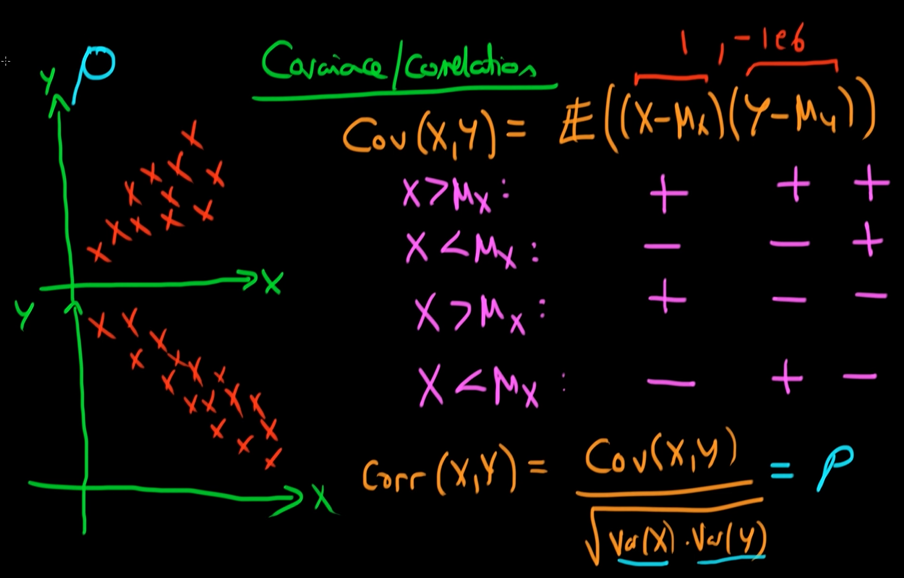 ρ
Covariance/Correlation
1 , -1e6
Cov(X,Y) = 𝔼((X-μx)(Y-μy))
Y
X>μx: + + +
X<μx: - - +
X
X>μx: + - -
Y
X<μx: - + -
Corr(X,Y) = Cov(X,Y) / √(Var(X)·Var(Y)) = ρ
X